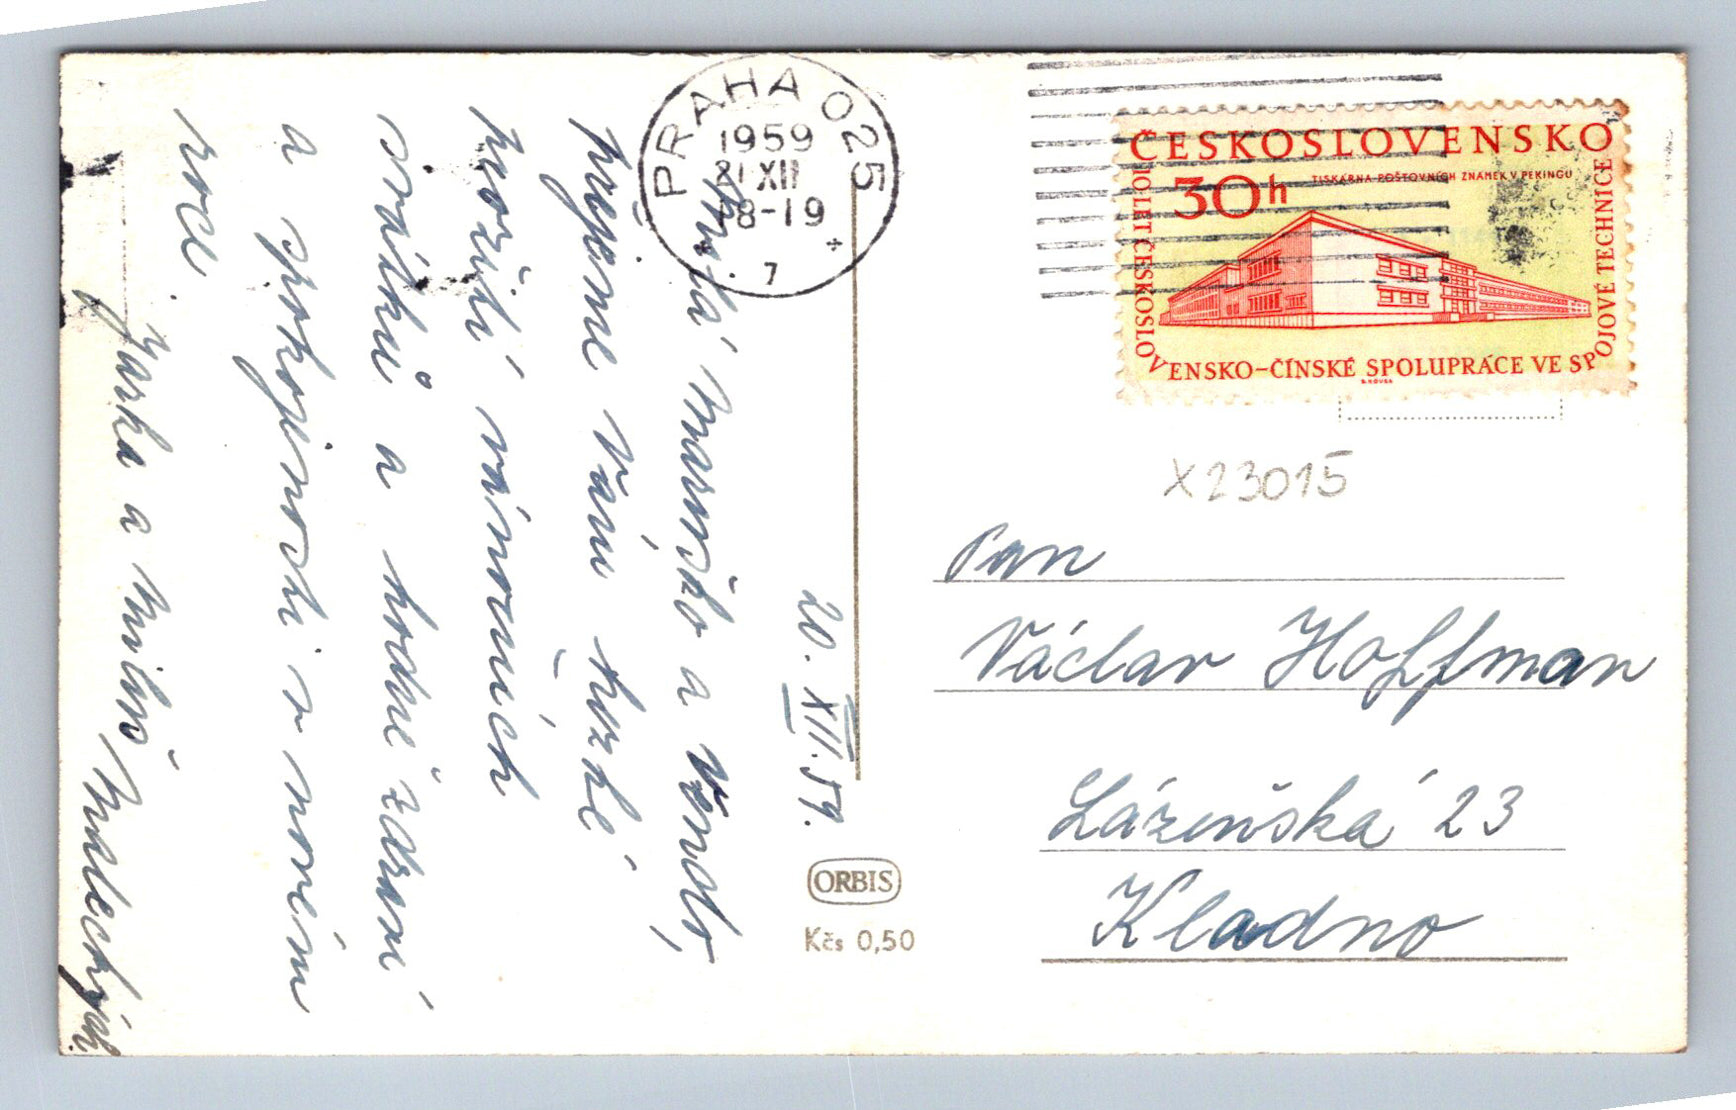 20. XII. 59.
Milá Mařenko a Vendo,
přejeme Vám hezké
prožití vánočních
svátků a hodně zdraví
a spokojenosti v novém
roce.
Jarka a Miluš
Malechých.
PRAHA 025
1959
21 XII
18-19
7
ČESKOSLOVENSKO
30h
TISKÁRNA POŠTOVNÍCH ZNÁMEK V PEKINGU
10 LET ČESKOSLOVENSKO-ČÍNSKÉ SPOLUPRÁCE VE SPOJOVÉ TECHNICE
X23015
Pan
Václav Hoffman
Lázeňská 23
Kladno
ORBIS
Kčs 0,50